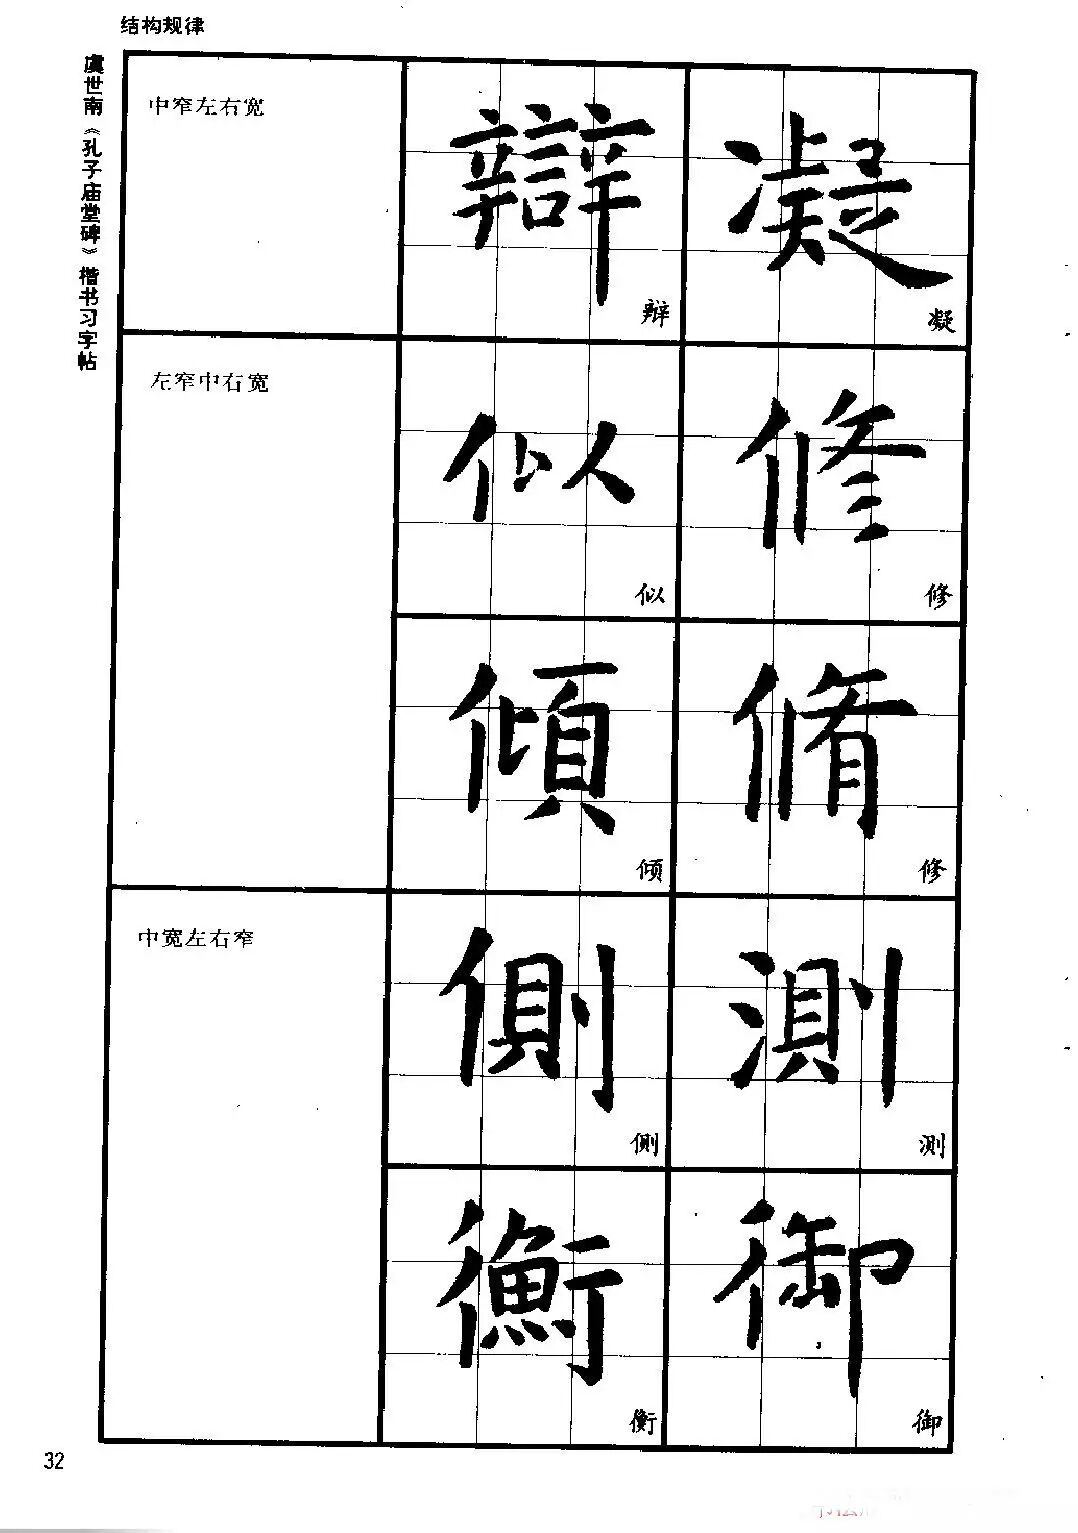 结构规律
虞世南《孔子庙堂碑》楷书习字帖
中窄左右宽
辯 凝
辩 凝
左窄中右宽
似 修
似 修
傾 脩
倾 修
中宽左右窄
側 測
侧 测
衡 御
衡 御
32